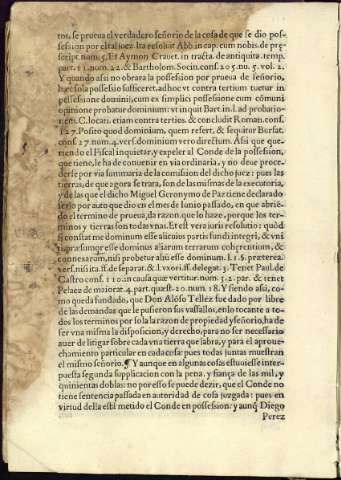 tos, se prueua el verdadero señorio de la cosa de que se dio pos-
session por el tal juez. Ita resoluit Abb in cap. cum nobis. de pręs-
cript. num. 5. Et Aymon Crauet. in tracta. de antiquita. temp.
part. 1. num. 22. & Bartholom. Socin. cons. 205. nu. 5. vol. 2.
Y quando assi no obrara la possession por prueua de señorio,
la possessio sufficeret, adhoc vt contra tertium tuetur in
possessione dominii, cum ex simplici possessione cum cómuni
opinione probatur dominium vt in quit Bart. in l. ad probatio-
nem. C. locati. etiam contra tertios. & concludit Roman. cons.
527. Posito quod dominium, quem refert, & sequitur Bursat.
cons. 27. num. 4. vers. dominium vero directum. Assi que que-
riendo el Fiscal inquietar, y expeler al Conde de la possession,
que tiene, le ha de conuenir en via ordinaria, y no deue proce-
derse por via summaria de la comision del dicho juez: pues las
tierras, de que agora se trata, son de las mismas de la executoria,
y de las que el dicho Miguel Geronymo de Paz tiene declarado
serlo por auto que dio en el mes de Iunio passado, en que abrié-
do el termino de prueua, da razon que lo haze, porque los ter-
minos y tierras son todas vnas. Et est vera iuris resolutio: quòd
si constat me dominum esse alicuius partis fundi integri, & vni
præsumor esse dominus aliarum terrarum cohęrentium, &
connexarum, nisi probetur aliū esse dominum. l. 1. §. præterea
vers. nisi ita. ff. de separat. & l. vxori. ff. delegat. 3. Tenet Paul. de
Castro cons. 110. in causa que vertitur. num. 3. 2. par. & tenet
Pelaez de maiorat. 4. part. quæst. 20. num. 18. Y siendo assi, co-
mo queda fundado, que Don Alóso Tellez fue dado por libre
de las demandas que le pusieron sus vassallos, en lo tocante a to-
dos los terminos por sola la razon de propiedad y señorio, ha de
ser vna misma la disposicion, y derecho, para no ser necessario
auer de litigar sobre cada vna tierra que labra, y para el aproue-
chamiento particular en cada cosa: pues todas juntas muestran
el mismo señorio. ¶ Y aunque en algunas cosas estuuiesse inter-
puesta segunda supplicacion con la pena, y fiança de las mil, y
quinientas doblas: no por esso se puede dezir, que el Conde no
tiene sentencia passada en autoridad de cosa juzgada: pues en
virtud della està metido el Conde en possession: y aunq̃ Diego
Perez